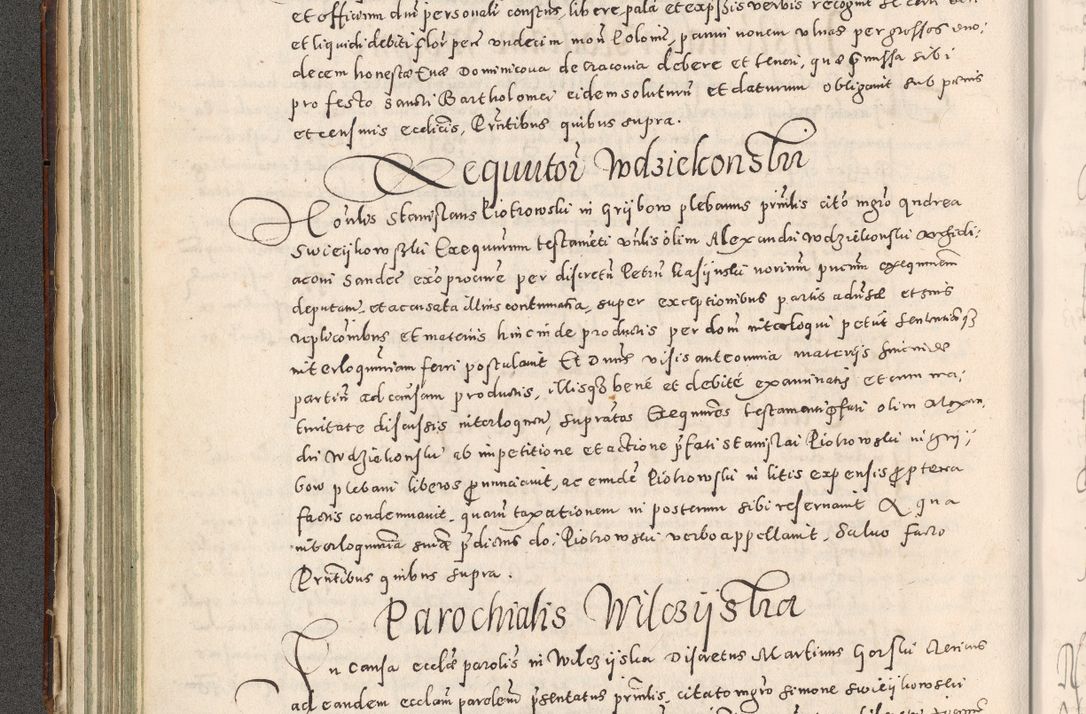 et officium dni personali constus, libere pala et expssis verbis recognt se certi veri
et liquidi debiti flor per undecim mon Polonic, panni novem ulnas per grossos duo,
decem honestæ Evæ Dominicova de Cracovia debere et teneri, quæ pmissa sibi
pro festo Sancti Bartholomei eidem soluturum et daturum obligavit sub pænis
et censuris ecclicis, Pntibus quibus supra.
Exequutor Wdziekonskii
Honlis Stanislaus Piotrowski in Grijbow plebanus prmlis cito mgro Andrea
Swieijkowszki Exequutum testameti vnlis olim Alexandri Wdziekonski Archidi,
aconi Sandec exo procure per discretu Petru Kasijnski notirium pucum exequutem
deputatum, et accusata illius contumatia, super exceptionibus partis adusæ et suis
replicōnibus et materiis hincinde productis per dom interloqui petiit sententiasqz
interloqutoriam ferri postulavit Et Dnus visis ante omnia materijs hincinde
partiu ad causam productis, illisqz bené et debité examinatis et cum ma,
turitate discussis interloquendo, supratos Exequutores testamenti pfati olim Alexan,
dri Wdziekonski ab impetitione et actione pfati Stanislai Piotrowski in Grij,,
bow plebani liberos pnunciavit, ac eunde Piotrowski in litis expensis propterea
factis condemnavit, quarum taxationem in posterum sibi reservavit A qua
interloqutoria suæ pdictus do: Piotrowski verbo appellavit, Salvo facto
Pntibus quibus supra.
Parochialis Wilczijska
In causa ecclæ parolis in Wilczijska Discretus Martinus Gorski Clericus
ad eandem ecclam parolem psentatus prmlis, citato mgro Simone Swieijkowski